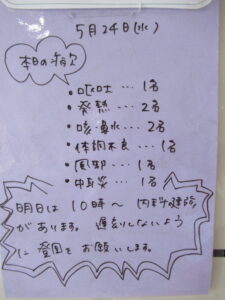 5月24日(水)
本日の病欠
・嘔吐…1名
・発熱…2名
・咳・鼻水…2名
・体調不良…1名
・風邪…1名
・中耳炎…1名
明日は10時〜内科健診
があります。遅刻しないよう
に登園をお願いします。